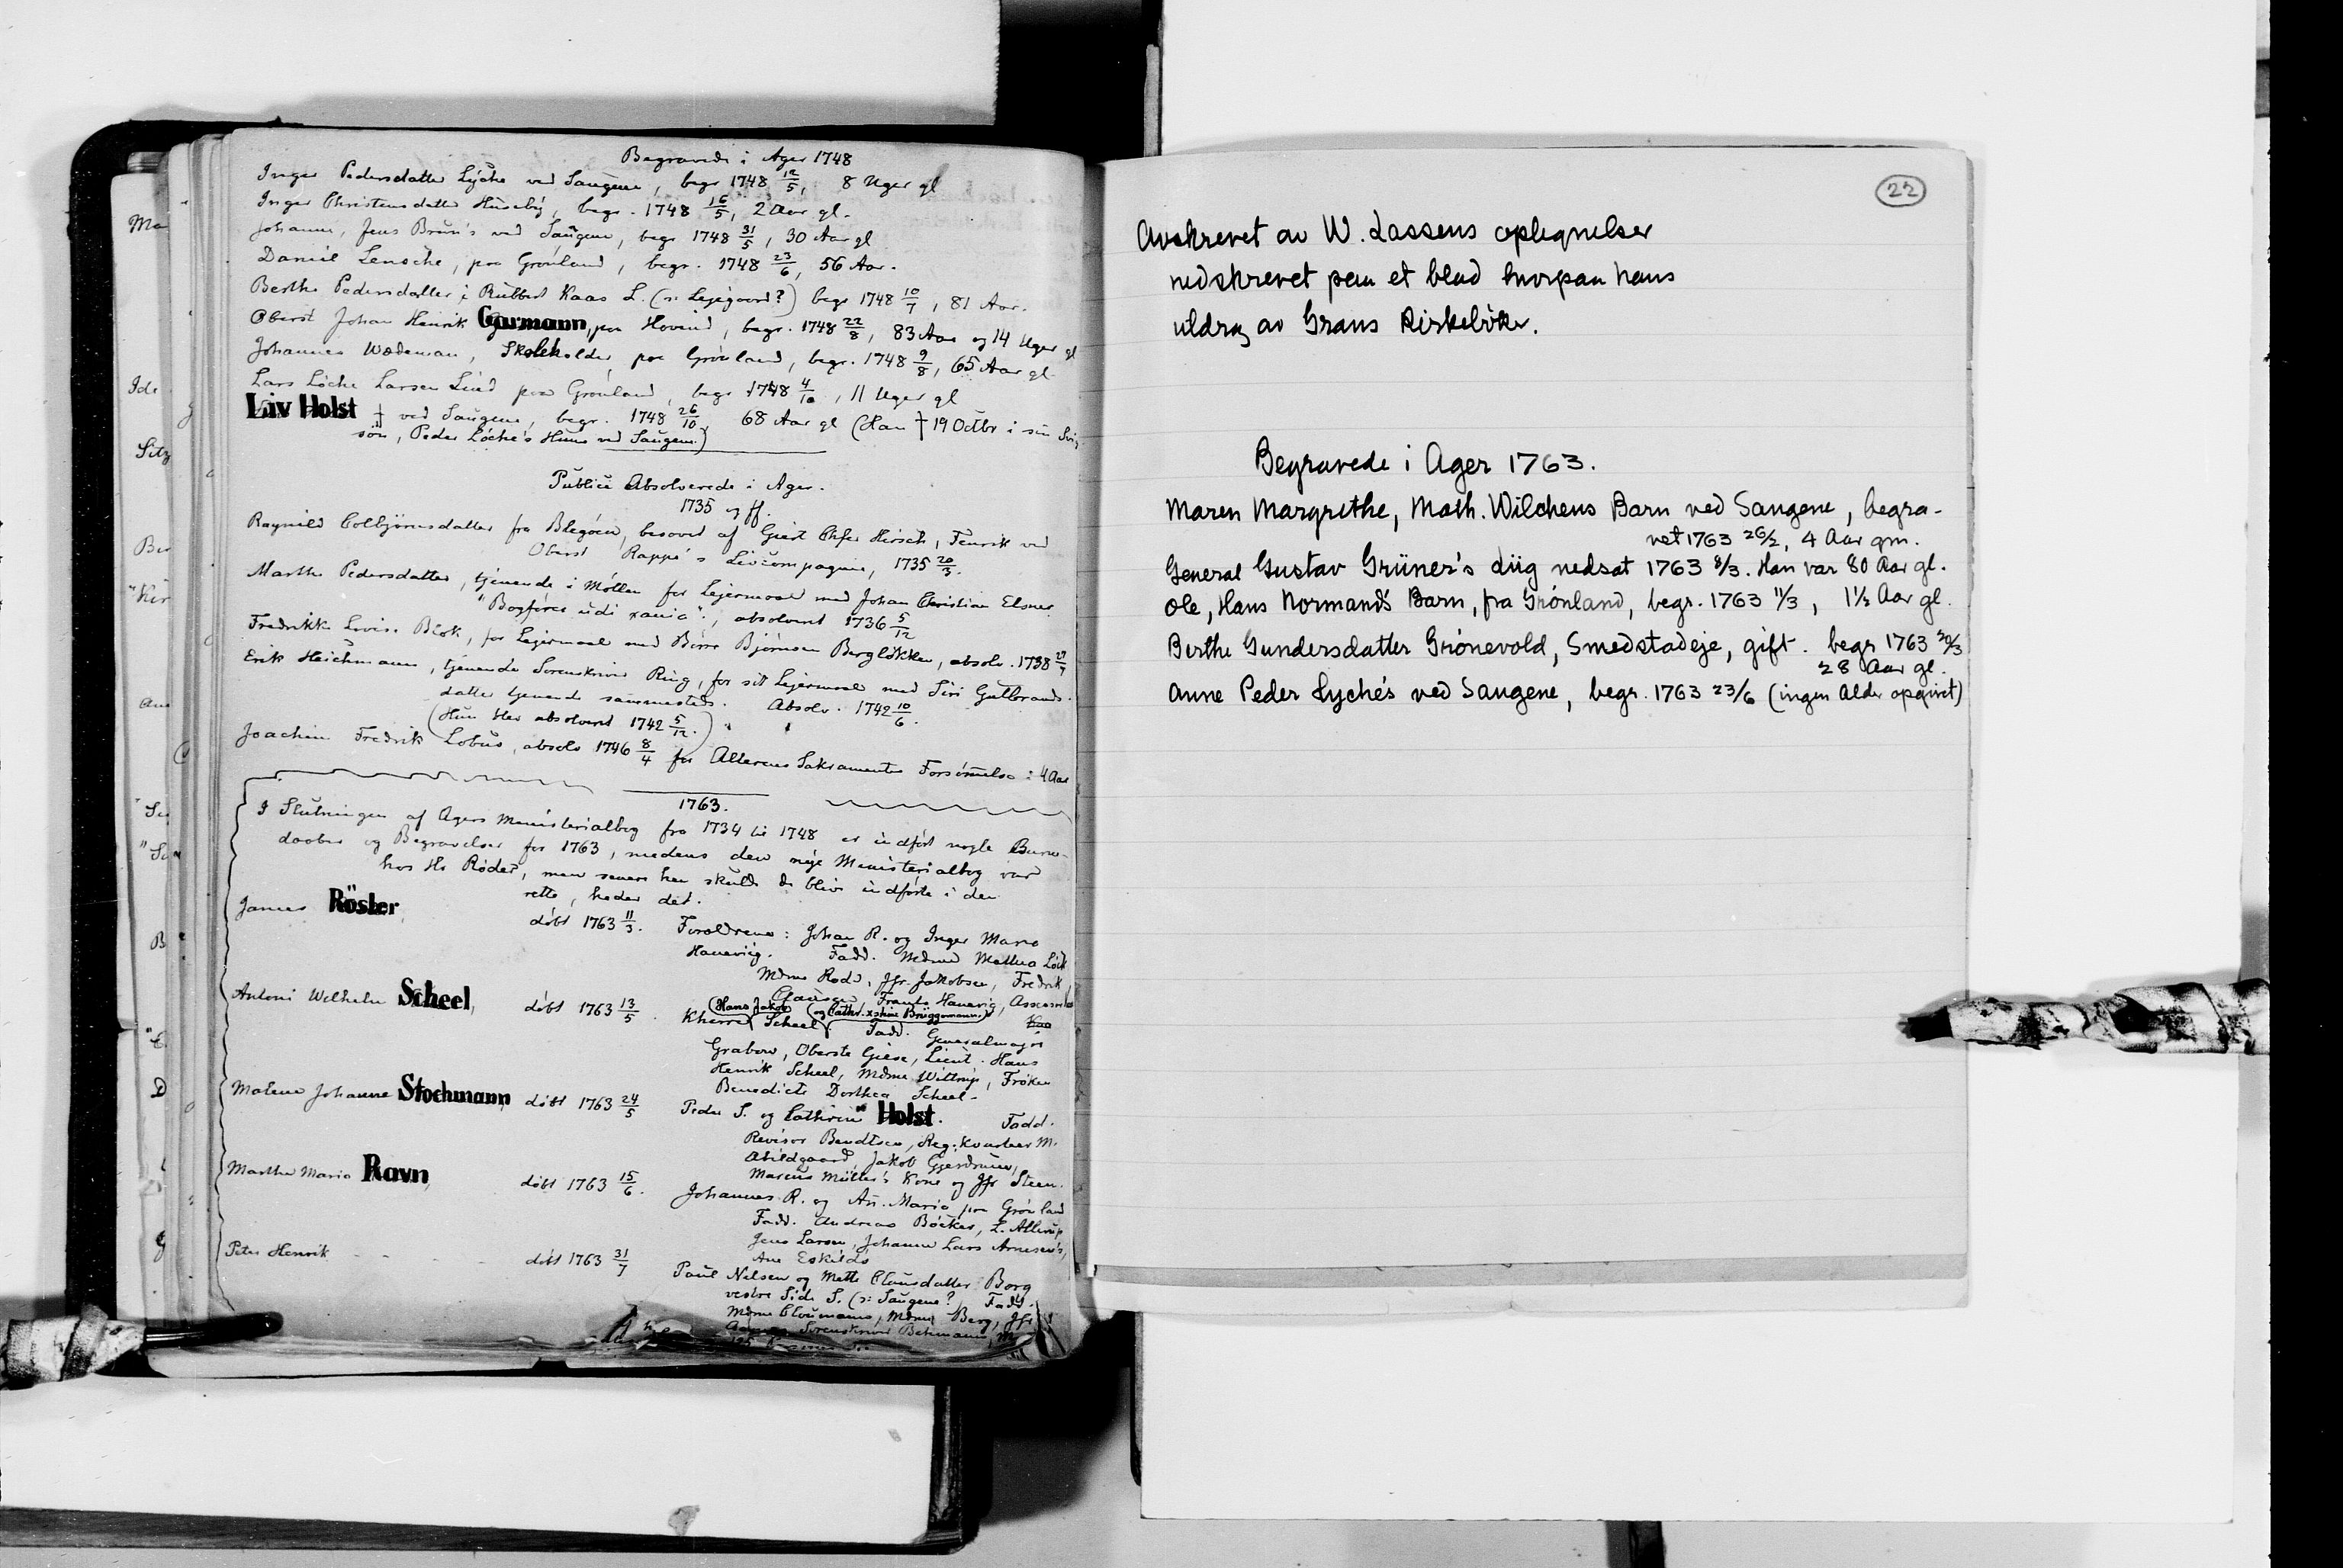 Begravede i Ager 1748
Inger Pedersdatter Lyche ved Saugene, begr 1748 12/5, 8 Uger gl
Inger Christensdatter Huseby, begr. 1748 16/5, 2 Aar gl.
Johanne, Jens Brun's ved Saugene, begr 1748 31/5, 30 Aar gl
Daniel Lensche, paa Grönland, begr. 1748 23/6, 56 Aar.
Berthe Pedersdatter i Rubbert Kaas L. (ɔ: Lejegaard?) begr 1748 10/7, 81 Aar.
Oberst Johan Henrik Garmann, paa Hovind, begr. 1748 22/8, 83 Aar og 14 Uger gl
Johannes Wedeman, Skoleholder, paa Grönland, begr. 1748 9/8, 65 Aar gl
Lars Löche Larsen Lind paa Grönland, begr 1748 4/10, 11 Uger gl
Liv Holst ved Saugene, begr. 1748 26/10, 68 Aar gl (Han † 19 Octbr i sin Svi
sön, Peder Löche's Huus ved Saugene.)
Publice Absolverede i Ager.
1735 og ff.
Ragnild Colbjörnsdatter fra Blegöen, besovet af Giert Chfer Hirsch, Fenrik ved
Oberst Rappe's Livcompagnie, 1735 20/3.
Marthe Pedersdatter, tjenende i Möllen for Lejermaal med Johan Christian Elsner
"Bogförer udi xania", absolveret 1736 5/12
Fredrikke Lovise Blok, for Lejermaal med Börre Björnsen Berglökken, absolv. 1738
Erik Heichmann, tjenende Sorenskriver Ring, for sit Lejermaal med Siri Gulbrands-
datter tjenende sammesteds. Absolv. 1742 10/6.
(Hun blev absolveret 1742 5/12.)
Joachim Fredrik Lobus, absolv 1746 8/4 for Alterens Sakramentes Forsömmelse i 4 Aar
1763.
I Slutningen af Agers Ministerialbog fra 1734 til 1748 er indfört nogle Barne-
daaber og Begravelser for 1763, medens den nye Ministerialbog var
hos Hr Röder, men senere hen skulde de blive indförte i den
rette, heder det.
James Rösler, döbt 1763 11/3. Forældrene: Johan R. og Inger Marie
Hanevig. Fadd. Mdme Mathea Löch
Mdme Rode, Jfr Jakobsen, Fredrik
Clausen, Frants Hanevig, Assessor
Antoni Wilhelm Scheel, döbt 1763 13/5. Kherre (Hans Jakob) Scheel (og Cathr. xstine Brüggemann) Fadd. Generalmajor
Grabow, Oberste Giese, Lieut. Hans
Henrik Scheel, Mdme Wittrup, Fröken
Benedicte Dorthea Scheel.
Malene Johanne Stochmann, döbt 1763 24/5 Peder S. og Cathrine Holst. Fadd.
Revisor Bendtsen, Reg: Kvarteer M.
Abildgaard, Jakob Gjerdrum,
Marcus Müller's Kone og Jfr Steen.
Marthe Maria Ravn, döbt 1763 15/6. Johannes R. og An. Maria paa Grönland
Fadd. Andreas Böcker, L. Allerup
Jens Larsen, Johanne Lars Arnesen's,
Ane Eskilds
Peter Henrik - - - döbt 1763 31/7 Paul Nilsen og Mette Clausdatter Borg
vestre Side S. (ɔ: Saugene? Fadd.
Mdme Cloumann, Mdme Berg, Jfr
Sorenskriver Behmann, M
22
Avskrevet av W. Lassens optegnelser
nedskrevet paa et blad hvorpaa hans
utdrag av Grans Kirkebòker.
Begravede i Ager 1763.
Maren Margrethe, Math. Wilchens Barn ved Saugene, begra-
vet 1763 26/2, 4 Aar gm.
General Gustav Grüner's Liig nedsat 1763 8/3. Han var 80 Aar gl.
Ole, Hans Normand's Barn, fra Grönland, begr. 1763 11/3, 1½ Aar gl.
Berthe Gundersdatter Grönevold, Smedstadeje, gift. begr 1763 20/3
28 Aar gl.
Anne Peder Lyche's ved Saugene, begr. 1763 23/6 (ingen Alder opgivet)